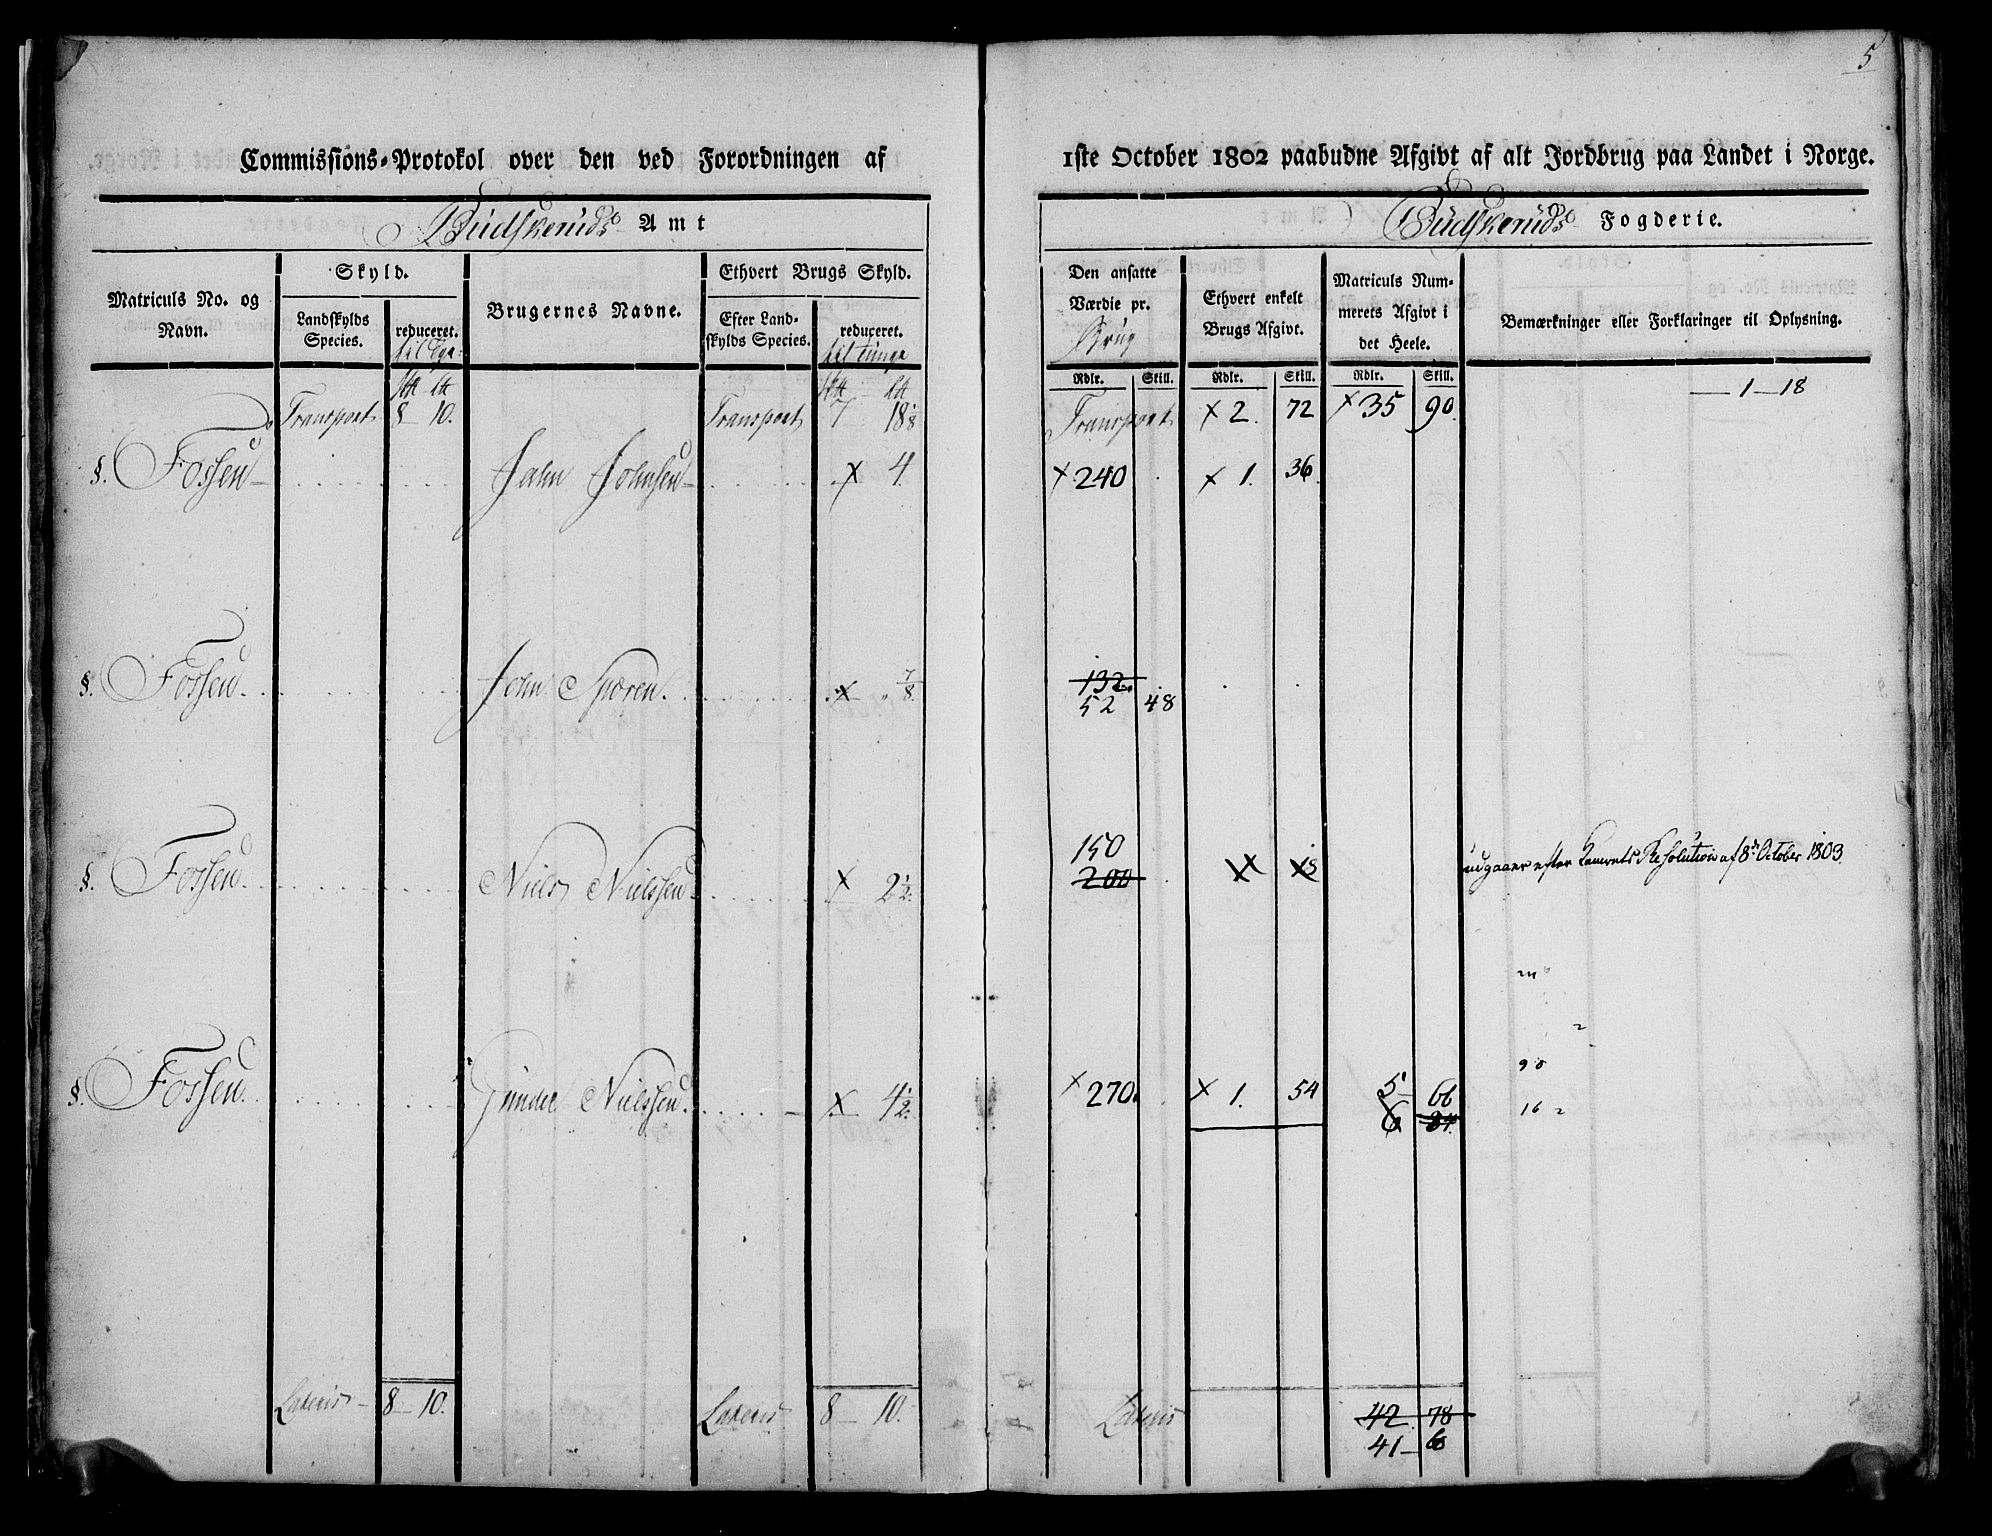 5
Commissions-Protokol over den ved Forordningen af 1ste October 1802 paabudne Afgivt af alt Jordbrug paa Landet i Norge.
Budskeruds Amt
Budskeruds Fogderie.
Matriculs No. og Navn.
Skyld.
Landskylds Species.
reduceret.
Brugernes Navne.
Ethvert Brugs Skyld.
Efter Landskylds Species.
reduceret.
til Tunge
Den ansatte Værdie pr. Brug
Ethvert enkelt Brugs Afgivt.
Matriculs Nummerets Afgivt i det Heele.
Bemærkninger eller Forklaringer til Oplysning.
Rdlr. Skill. Rdlr. Skill. Rdlr. Skill.
— 1 — 18
Transport 8 — 10. Transport 7 18 1/8 Transport × 2. 72 × 35 90.
§. Fossen Jahn Johnsen × 4. × 240 × 1. 36.
§. Fossen John Sporen × 7/8. 132
52 48
§. Fossen Niels Nielssen × 2 1/2. 150
200 udgaaer efter Kamrets Resolution af 8de October 1803
§. Fossen Gunder Nielssen × 4 1/2. × 270. × 1. 54 5 66
6 84.
90
16
Lateris 8 — 10. Lateris 8 — 10. Lateris 42. 78
41 — 60